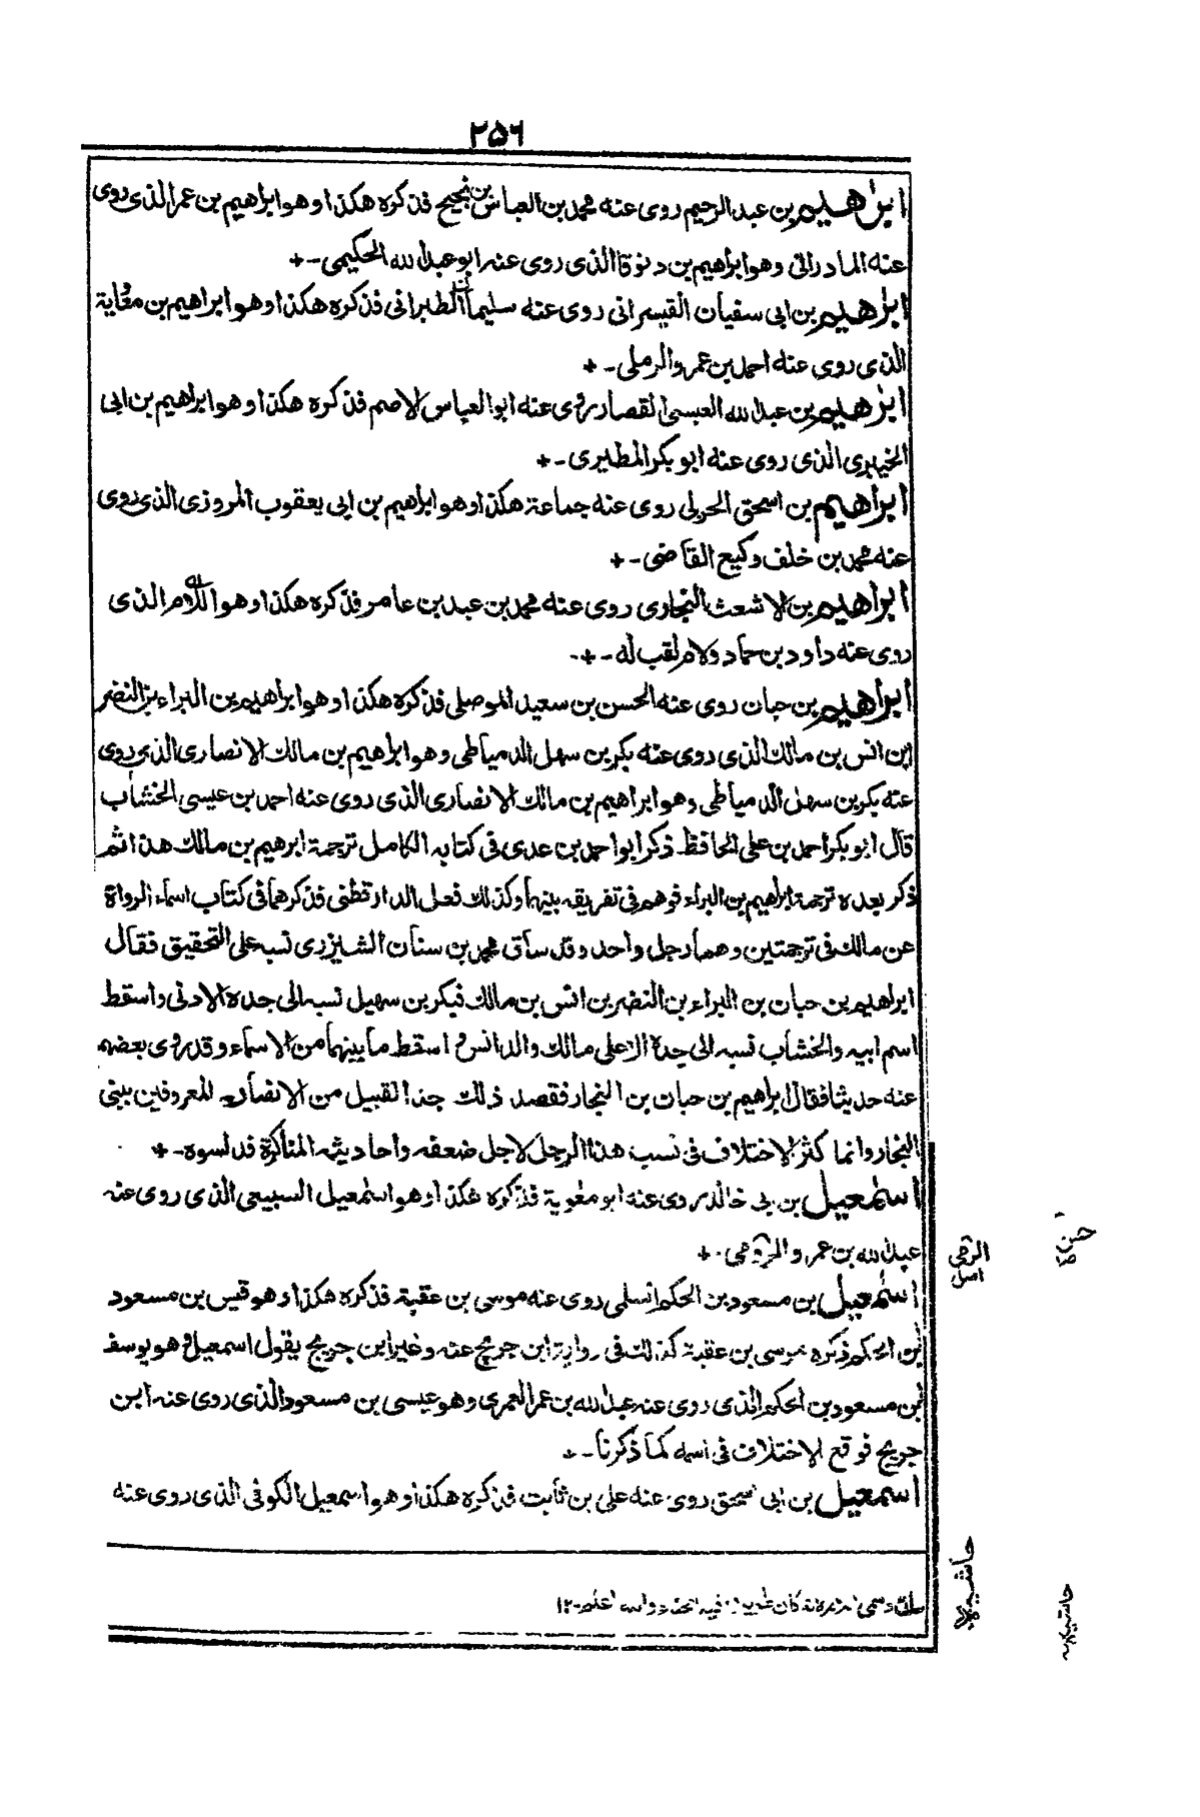 ٢٥٦
ابراهيم بن عبد الرحيم روى عنه محمد بن العباس بن نجيح فذكره هكذا وهو ابراهيم بن عمر الذى روى
عنه المادرائى وهو ابراهيم بن دنوقا الذى روى عنه ابو عبد الله الحكيمى-+
ابراهيم بن ابى سفيان القيسرانى روى عنه سليمان الطبرانى فذكره هكذا وهو ابراهيم بن معٰوية
الذى روى عنه احمد بن عمرو الرملى-+
ابرٰهيم بن عبد الله العبسى القصار روى عنه ابو العباس الاصم فذكره هكذا وهو ابراهيم بن ابى
الخيبرى الذى روى عنه ابو بكر المطيرى-+
ابراهيم بن اسحق الحربى روى عنه جماعة هكذا وهو ابراهيم بن ابى يعقوب المروزى الذى روى
عنه محمد بن خلف وكيع القاضى-+
ابراهيم بن الاشعث البخارى روى عنه محمد بن عبد بن عامر فذكره هكذا وهو اللام الذى
روى عنه داود بن حماد ولام لقب له-+-
ابراهيم بن حبان روى عنه الحسن بن سعيد الموصلى فذكره هكذا وهو ابراهيم بن البراء بن النضر
ابن انس بن مالك الذى روى عنه بكر بن سهل الدمياطى وهو ابراهيم بن مالك الانصارى الذى روى
عنه بكر بن سهل الدمياطى وهو ابراهيم بن مالك الانصارى الذى روى عنه احمد بن عيسى الخشاب
قال ابو بكر احمد بن على الحافظ ذكر ابو احمد بن عدى فى كتابه الكامل ترجمة ابرهيم بن مالك هذا ثم
ذكر بعده ترجمة ابراهيم بن البراء فوهم فى تفريقه بينهما وكذلك فعل الدارقطنى فذكرهما فى كتاب اسماء الرواة
عن مالك فى ترجمتين وهما رجل واحد وقد ساق محمد بن سنان الشيزرى نسبه على التحقيق فقال
ابراهيم بن حبان بن البراء بن النضر بن انس بن مالك فبكر بن سهيل نسبه الى جده الادنى واسقط
اسم ابيه والخشاب نسبه الى جده الاعلى مالك والد انس و اسقط ما بينهما من الاسماء وقد روى بعضهم
عنه حديثا فقال ابراهيم بن حبان بن النجار فقصد ذلك جذ القبيل من الانصار المعروفين ببنى
النجار وانما كثر الاختلاف فى نسب هذا الرجل لاجل ضعفه واحاديثه المناكرة قد لسوه-+
اسمٰعيل بن ابى خالد روى عنه ابو معٰوية فذكره هكذا وهو اسمٰعيل السبيعى الذى روى عنه
عبد الله بن عمرو الرقى-+
الرقى
اصل
اسمٰعيل بن مسعود بن الحكم السلمى روى عنه موسى بن عقبة فذكره هكذا وهو قيس بن مسعود
بن الحكم ذكره موسى بن عقبة كذلك فى رواية ابن جريج عنه وغير ابن جريج يقول اسمعيل وهو يوسف
ابن مسعود بن الحكم الذى روى عنه عبد الله بن عمر العمرى وهو عيسى بن مسعود الذى روى عنه ابن
جريج فوقع الاختلاف فى اسمه كما ذكرنا-+
اسمٰعيل بن ابى اسحق روى عنه على بن ثابت فذكره هكذا وهو اسمعيل الكوفى الذى روى عنه
حاشيه
حاشيه